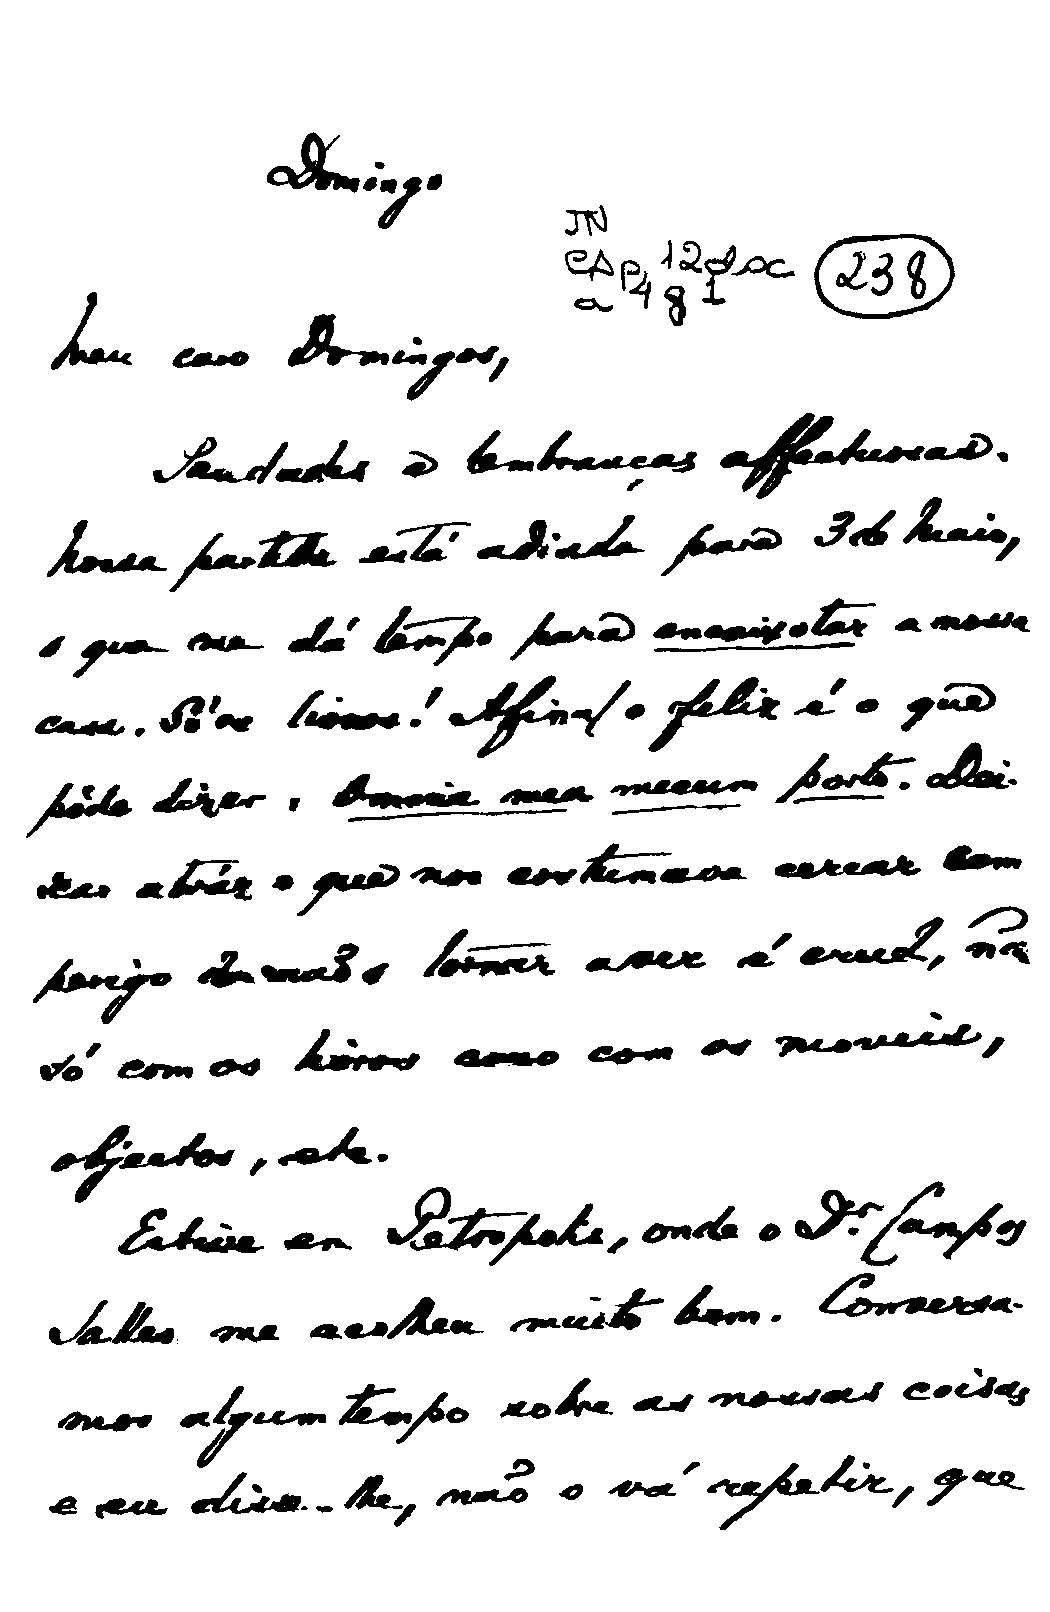 Domingo
JN
CAp 12 doc 238
a 4 g 1
Meu caro Domingos,
Saudades e lembranças affectuosas.
Nossa partida está adiada para 3 de Maio,
o que me dá tempo para encaixotar a nossa
casa. Só os livros! Afinal o feliz é o que
póde dizer: Omnia mea mecum porto. Dei-
xar atráz o que nos costumava cercar com
perigo de não o tornar a ver é cruel, não
só com os livros como com os moveis,
objectos, etc.
Estive em Petropolis, onde o Dr. Campos
Salles me acolheu muito bem. Conversa-
mos algum tempo sobre as nossas coisas
e eu disse-lhe, não o vá repetir, que